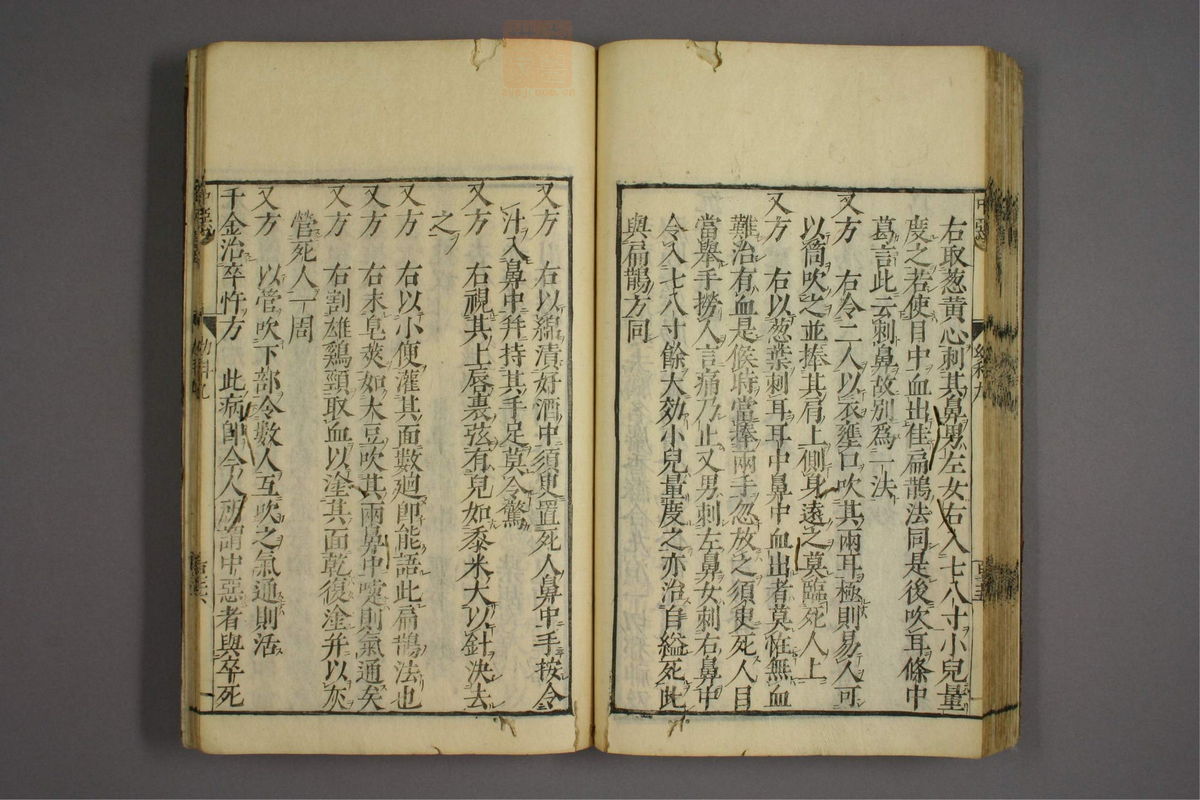 右取葱黄心刺其鼻男左女右入七八寸小兒量
度之若使目中血出佳扁鵲法同是後吹耳條中
葛言此云刺鼻故別爲一法
又方　右令二人以衣壅口吹其兩耳極則易人可
以筒吹之並捧其肩上側身遠之莫臨死人上
又方　右以葱葉刺耳耳中鼻中血出者莫恠無血
難治有血是候時當捧兩手忽放之須臾死人目
當舉手撈人言痛乃止又男刺左鼻女刺右鼻中
令入七八寸餘大効小兒量度之亦治自縊死此
與扁鵲方同
又方　右以綿漬好酒中須臾置死人鼻中手按令
汁入鼻中幷持其手足莫令驚
又方　右視其上唇裏弦有兒如黍米大以針決去
之
又方　右以小便灌其面數廻卽能語此扁鵲法也
又方　右末皂莢如大豆吹其兩鼻中嚏則氣通矣
又方　右割雄鷄頸取血以塗其面乾復塗幷以灰
營死人一周
又方　以管吹下部令數人互吹之氣通則活
千金治卒忤方　此病卽今人所謂中惡者與卒死